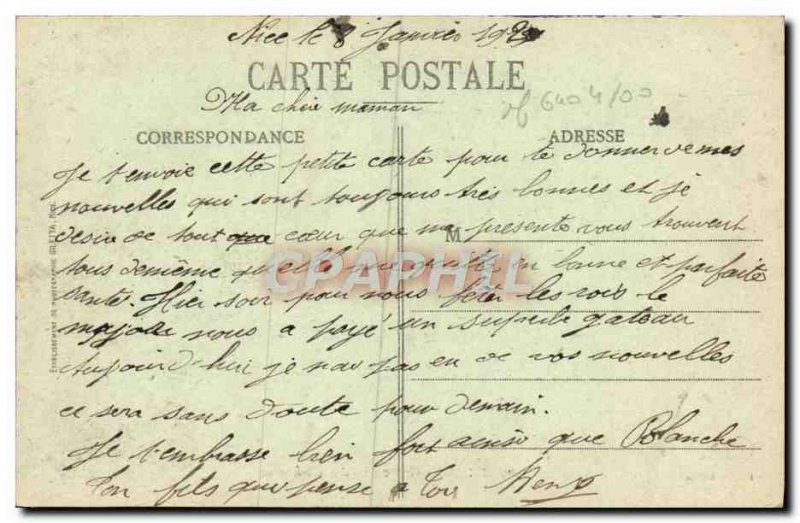 Nice le 8 Janvier 192
CARTE POSTALE
Ma chère maman
6404/00
CORRESPONDANCE
ADRESSE
Je t'envoie cette petite carte pour te donner de mes
nouvelles qui sont toujours très bonnes et je
désire de tout que cœur que ma présente vous trouvent
M
tous de même qu'elle me quitte en bonne et parfaite
santé. Hier soir pour nous fêter les rois le
major nous a payé un superbe gateau
Aujourd'hui je n'ai pas eu de vos nouvelles
ce sera sans doute pour demain.
Je t'embrasse bien fort ainsi que Blanche
Ton fils qui pense a toi
GRAPHIL
ETABLISSEMENT DE PHOTOGRAPHIE GILETTA NICE